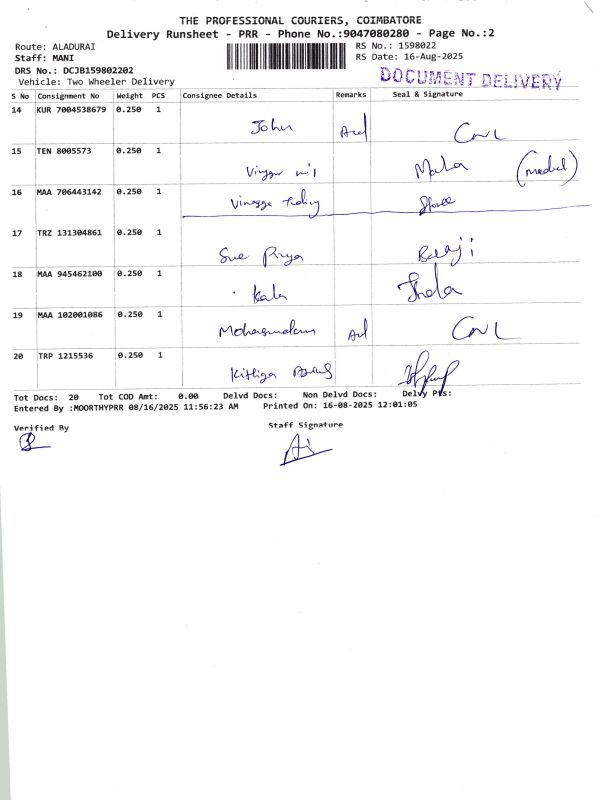 THE PROFESSIONAL COURIERS, COIMBATORE
Delivery Runsheet - PRR - Phone No.:9047080280 - Page No.:2
Route: ALADURAI RS No.: 1598022
Staff: MANI RS Date: 16-Aug-2025
DRS No.: DCJB159802202
Vehicle: Two Wheeler Delivery DOCUMENT DELIVERY
S No Consignment No Weight PCS Consignee Details Remarks Seal & Signature
14 KUR 7004538679 0.250 1
John
15 TEN 8005573 0.250 1
Maha
16 MAA 706443142 0.250 1
17 TRZ 131304861 0.250 1
Priya Balaji
18 MAA 945462100 0.250 1
Kala
19 MAA 102001086 0.250 1
20 TRP 1215536 0.250 1
Tot Docs: 20 Tot COD Amt: 0.00 Delvd Docs: Non Delvd Docs: Delvy Pts:
Entered By :MOORTHYPRR 08/16/2025 11:56:23 AM Printed On: 16-08-2025 12:01:05
Verified By Staff Signature